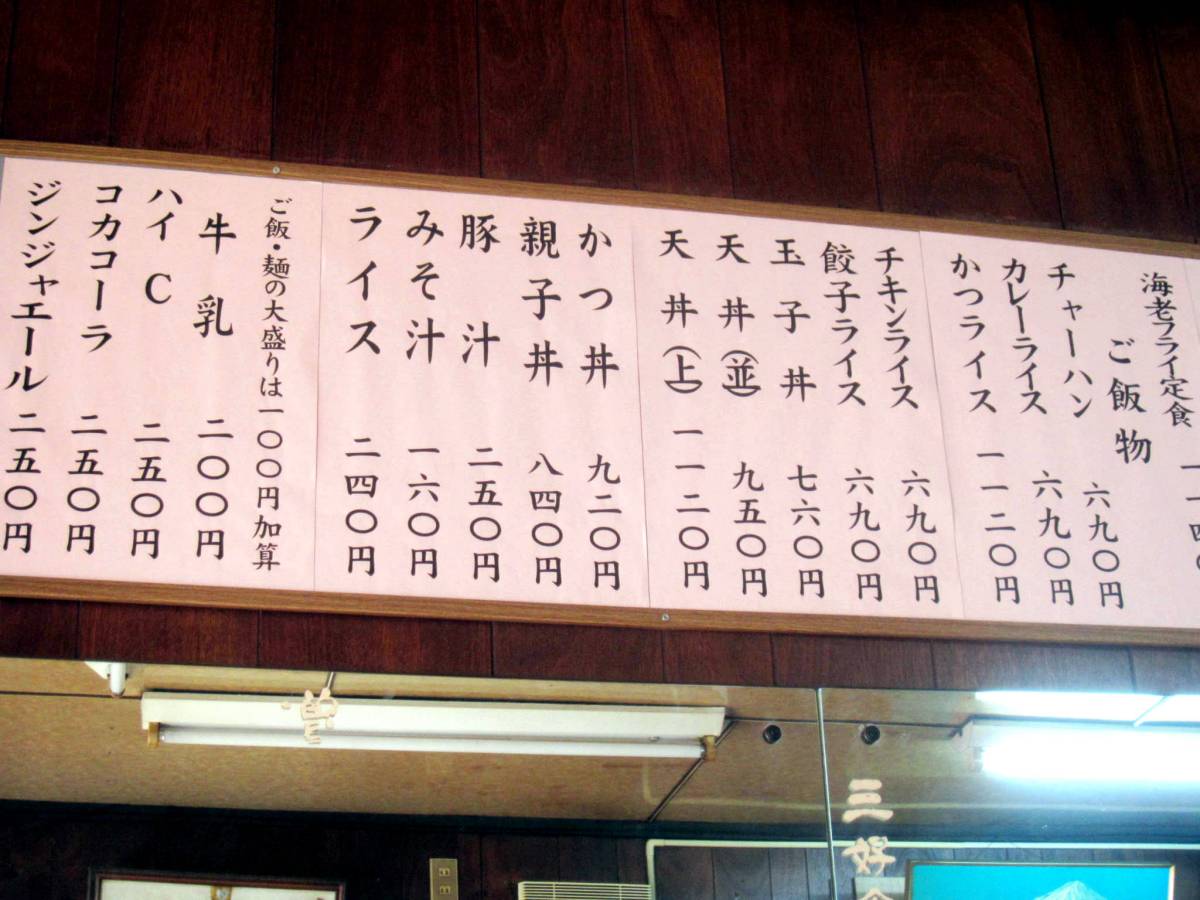 海老フライ定食
ご飯物
チャーハン 六九〇円
カレーライス 六九〇円
かつライス 一一二〇円
チキンライス 六九〇円
餃子ライス 六九〇円
玉子丼 七六〇円
天丼(並) 九五〇円
天丼(上) 一一二〇円
かつ丼 九二〇円
親子丼 八四〇円
豚汁 二五〇円
みそ汁 一六〇円
ライス 二四〇円
ご飯・麺の大盛りは一〇〇円加算
牛乳 二〇〇円
ハイC 二五〇円
コカコーラ 二五〇円
ジンジャエール 二五〇円
三好